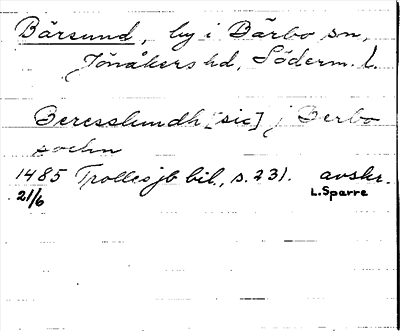 Bärsund, by i Bärbo sn,
Jönåkers hd, Söderm. l.
Beresslundh [sic] i Berbo
sochn
1485 Trolles jb bil., s. 231. avskr.
21/6 L. Sparre